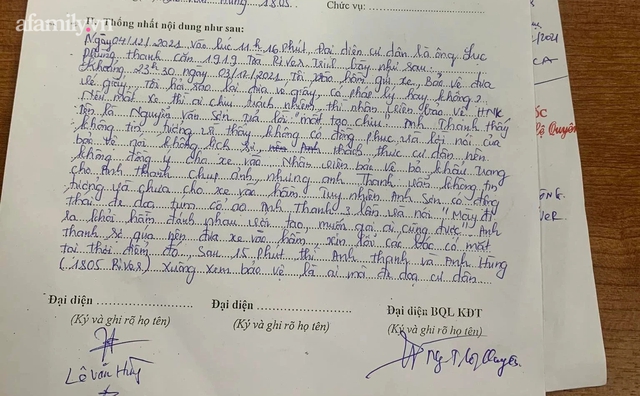 afamily.vn
Hùng 1805
Chức vụ:
II. Thống nhất nội dung như sau:
Ngày 04/12/2021 vào lúc 11h 16 phút, Đại diện cư dân là ông Lục
Phùng Thanh căn 1919 Tòa River trình bày như sau:
Khoảng 23h 30 ngày 03/12/2021, Tôi vào hầm gửi xe, Bảo vệ đưa
vé giấy, Tôi hỏi sao lại đưa vé giấy, có pháp lý hay không?
Nếu mất xe thì ai chịu trách nhiệm thì nhân viên bảo vệ HNK
tên là Nguyễn Văn Sơn trả lời "mất tao chịu". Anh Thanh thấy
không tin tưởng vì thấy không có đồng phục và lời nói của
bảo vệ nói không lịch sự khách, thực cư dân nên
không đồng ý cho xe vào. Nhân viên bảo vệ bỏ khẩu trang
cho Anh Thanh chụp ảnh, nhưng anh Thanh vẫn không tin
tưởng và chưa cho xe vào hầm. Tuy nhiên Anh Sơn có động
thái đe dọa túm cổ áo Anh Thanh 3 lần và nói "Mày đi
ra khỏi hầm đánh nhau với tao, muốn gọi ai cũng được". Anh
Thanh sợ quá nên đưa xe vào hầm, xin lỗi các bác có mặt
tại thời điểm đó, sau 15 phút thì Anh Thanh và Anh Hùng
(1805 River) xuống xem bảo vệ là ai mà đe doạ cư dân
Đại diện
Đại diện
Đại diện BQL KĐT
(Ký và ghi rõ họ tên)
(Ký và ghi rõ họ tên)
(Ký và ghi rõ họ tên)
Lê Văn Hùng
Quyên
/2021
CA
Quyên
VER